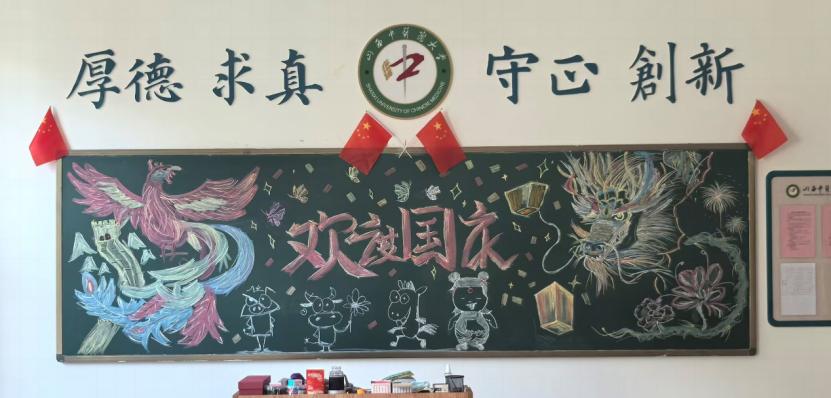 厚德 求真 守正 創新
山西中醫藥大學
SHANXI UNIVERSITY OF CHINESE MEDICINE
欢度国庆